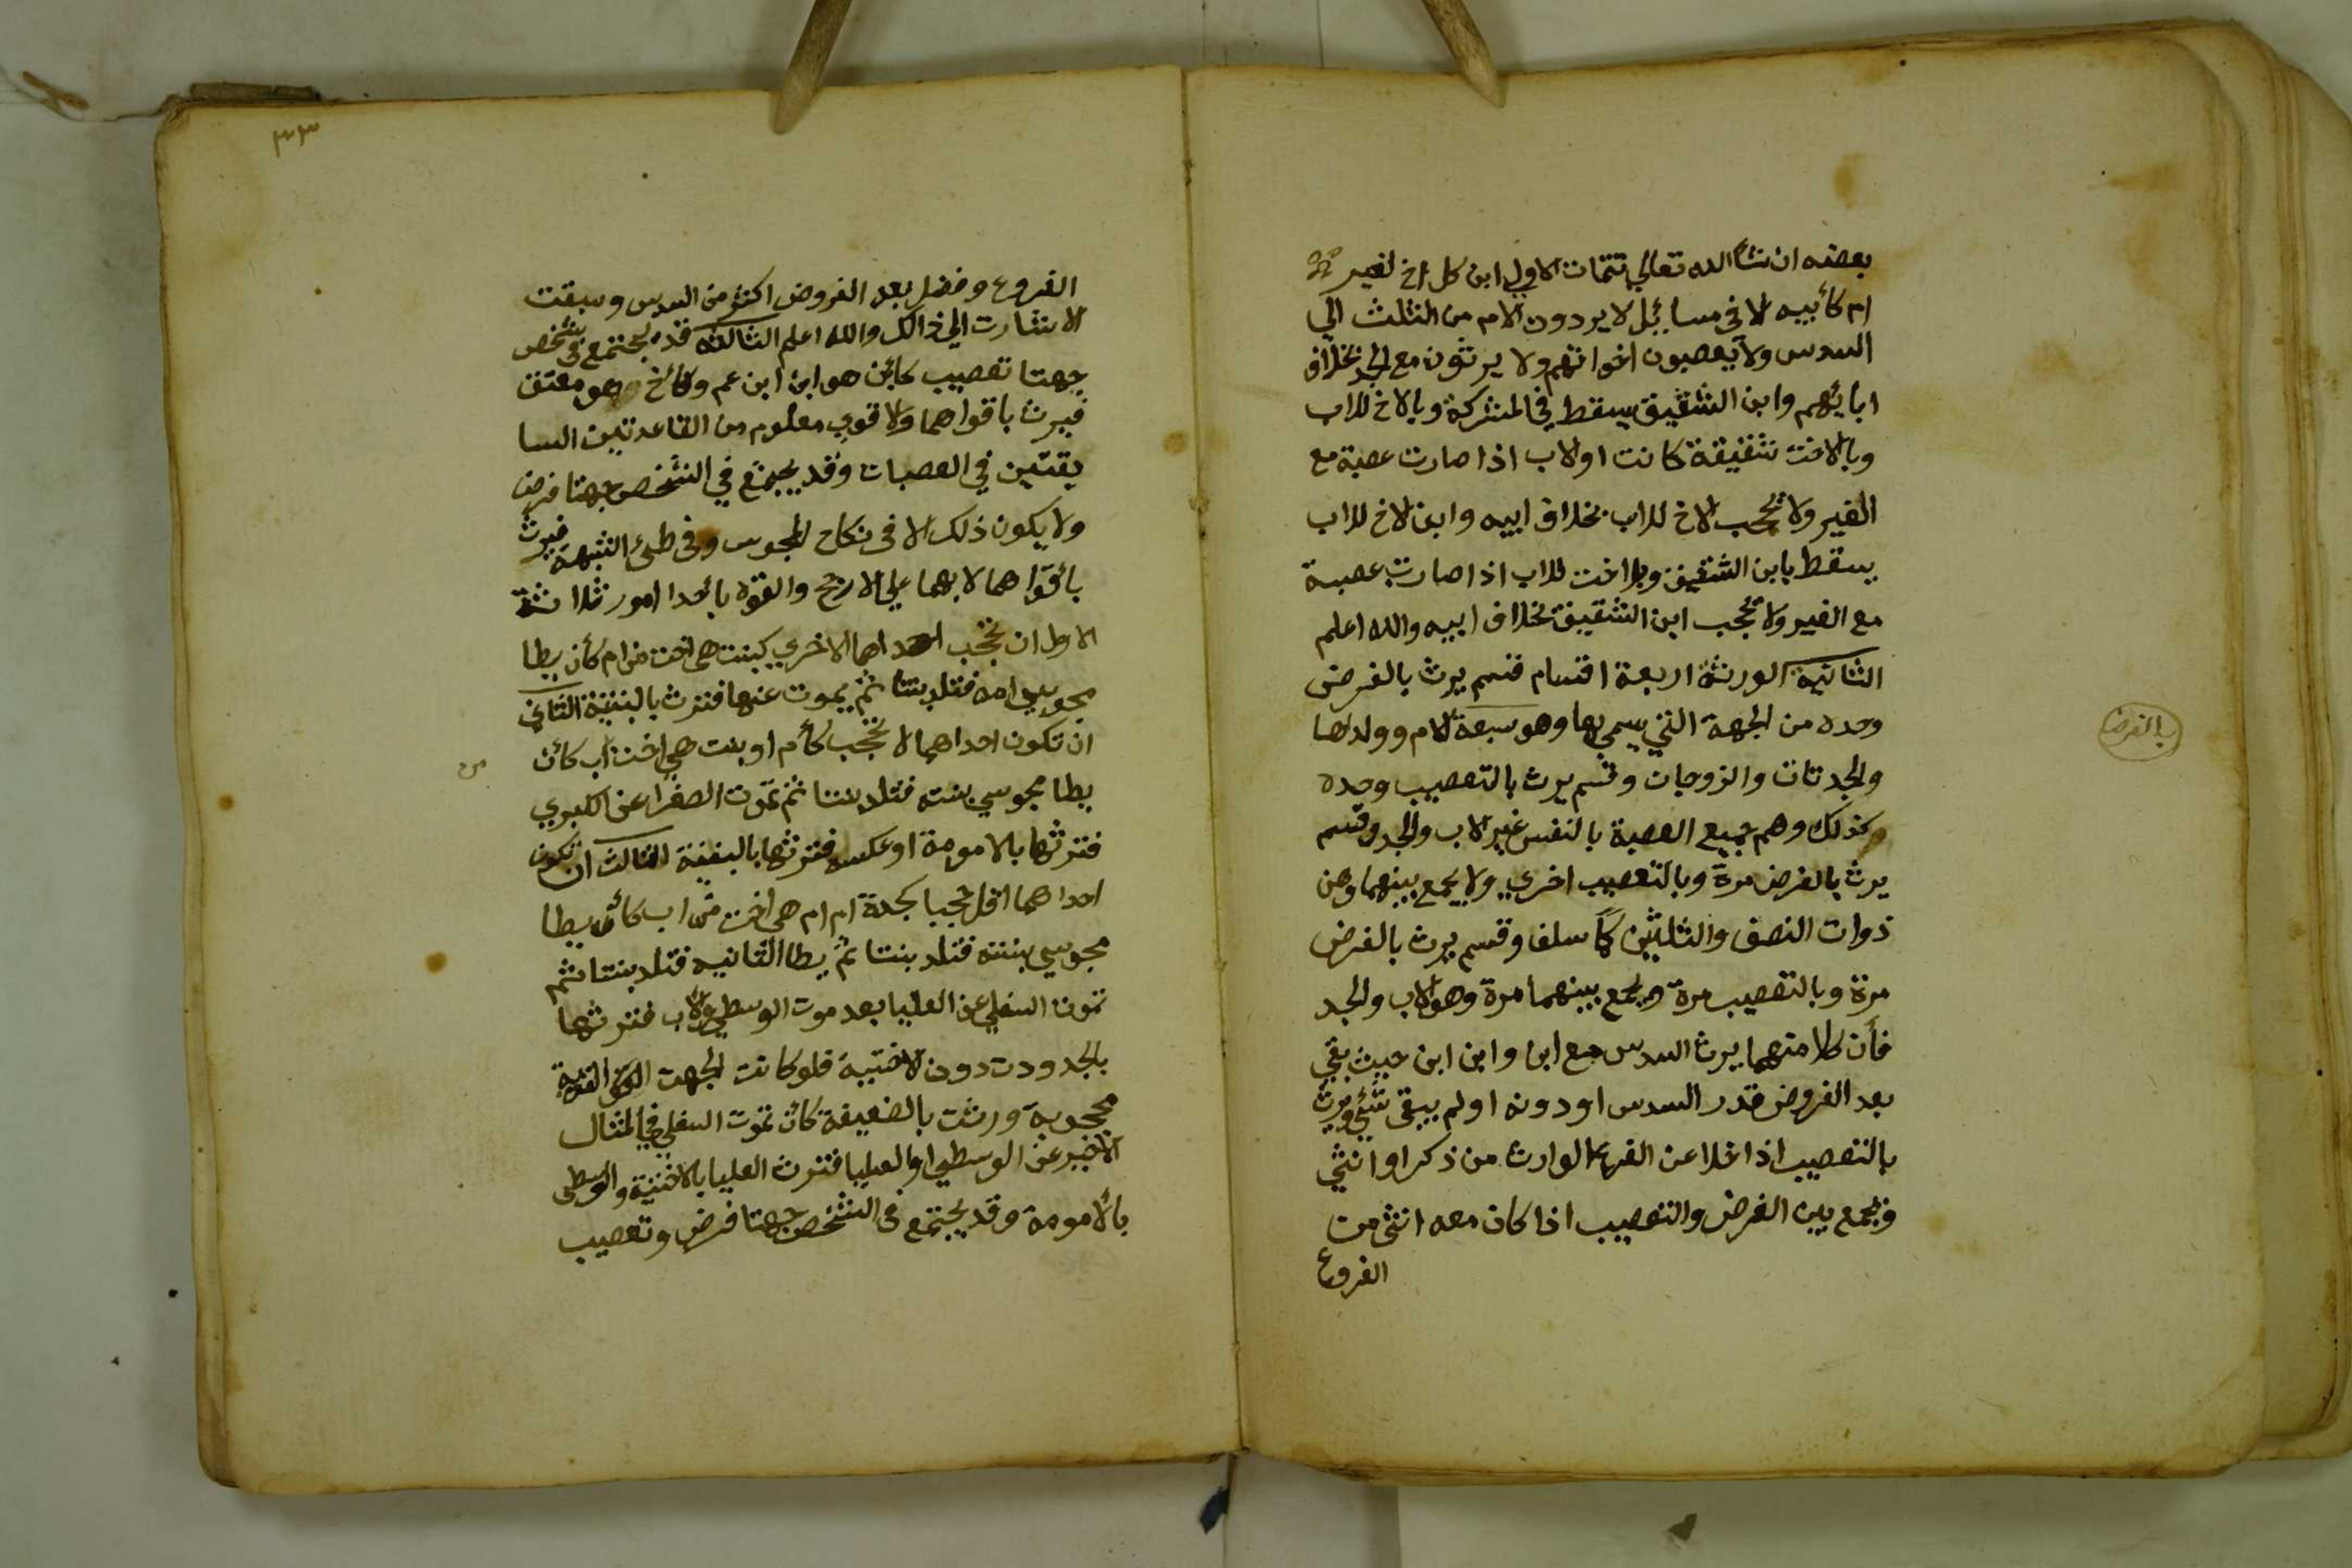 بعضه ان شاالله تعالي تتمات الاولي ابن كل اخ لغير
ام كأبيه الا في مسائل لا يردون الام من الثلث الي
السدس ولا يعصبون اخواتهم ولا يرثون مع الجد بخلاف
ابايهم وابن الشقيق يسقط في المشركة وبالاخ للاب
وبالاخت شقيقة كانت اولاب اذا صارت عصبة مع
الغير ولا تحجب الاخ للاب بخلاف ابيه وابن الاخ للاب
يسقط بابن الشقيق وبلاخت للاب اذا صارت عصبة
مع الغير ولا تحجب ابن الشقيق بخلاف ابيه والله اعلم
الثانية الورثة اربعة اقسام قسم يرث بالفرض
وحده من الجهة التي يسمي بها وهو سبعة الام وولداها
والجدتان والزوجان وقسم يرث بالتعصيب وحده
وكذلك وهم جميع العصبة بالنفس غير الاب والجد وقسم
يرث بالفرض مرة وبالتعصيب اخري ولا يجمع بينهما وهن
ذوات النصف والثلثين كما سلف وقسم يرث بالفرض
مرة وبالتعصيب مرة ويجمع بينهما مرة وهو الاب والجد
فأن كلا منهما يرث السدس مع ابن وابن ابن حيث بقي
بعد الفروض قدر السدس اودونه اولم يبقى شئي ويرث
بالتعصيب اذا خلا عن الفرع الوارث من ذكر اوانثي
ويجمع بين الفرض والتعصيب اذا كان معه انثى من
الفروع
بالفرض
٣٣
الفروع وفضل بعد الفروض اكثر من السدس وسبقت
الاشارت الي ذالك والله اعلم الثالثة قد يجتمع في شخص
جهتا تعصيب كابن هو ابن ابن عم وكاخ وهو معتق
فيرث باقواهما والاقوي معلوم من القاعدتين السا
بقتين في العصبات وقد يجتمع في الشخص جهتا فرض
ولا يكون ذلك الا في نكاح المجوس وفي طئ الشبهة فيرث
بأقواهما لا بهما علي الارجح والقوة بأحدا امور ثلاثة
الاول ان تحجب احداهما الاخري كبنت هي اخت من ام كأن يطا
مجوسي امه فتلد بنتا ثم يموت عنها فترث بالبنتية الثاني
ان تكون احداهما لا تحجب كأم او بنت هي اخت اب كأن
يطا مجوسي بنته فتلد بنتا ثم تموت الصغرا عن الكبري
فترثها بالامومة او عكسه فترثها بالبنتية الثالث ان تكون
احداهما اقل حجبا كجدة ام ام هي اخت من اب كأن يطا
مجوسي بنته فتلد بنتا ثم يطا الثانيه فتلد بنتا ثم
تموت السفلي عن العليا بعد موت الوسطي والاب فترثها
بالجدودت دون الاختية فلو كانت الجهت القوية
محجوبة ورثت بالضعيفة كأن تموت السفلي في المثال
الاخير عن الوسطي والعليا فترث العليا بالاختية والوسطى
بالأمومة وقد يجتمع في الشخص جهتا فرض وتعصيب